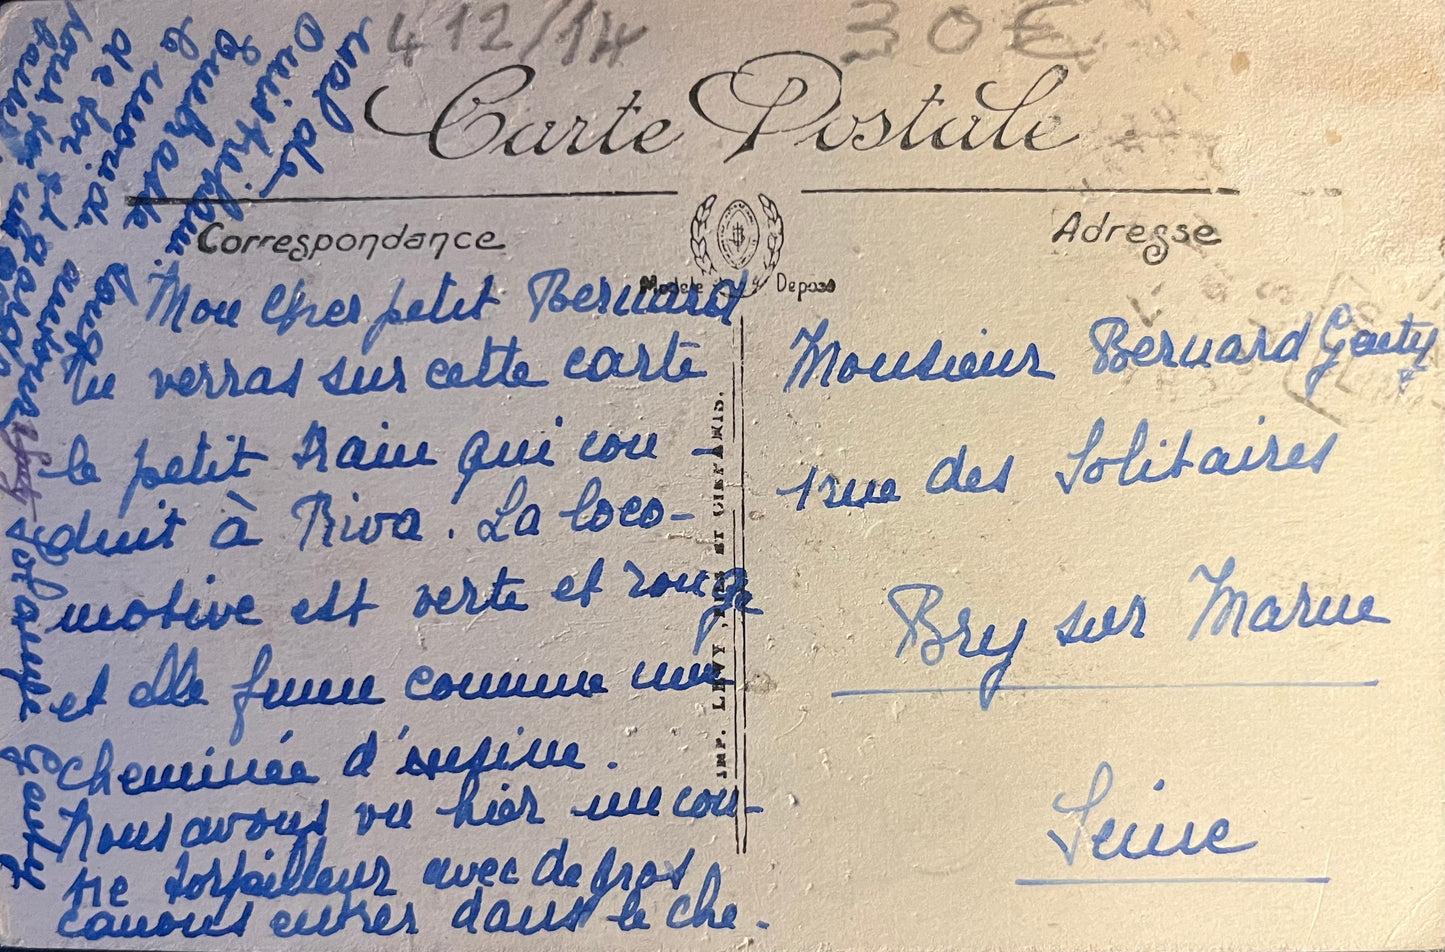 412/14
30€
Carte Postale
Correspondance
Adresse
Modèle Déposé
Mon cher petit Bernard
tu verras sur cette carte
le petit train qui con-
duit à Riva. La loco-
motive est verte et rouge
et elle fume comme une
cheminée d'usine.
Nous avons vu hier un con-
tre torpilleur avec de gros
canons entrer dans le che-
nal de
Ouistreham
Embrasse
le
de
pour toi et garde
Solange Gauty
IMP. LEVY
ET CIE PARIS.
Monsieur Bernard Gauty
1 rue des Solitaires
Bry sur Marne
Seine